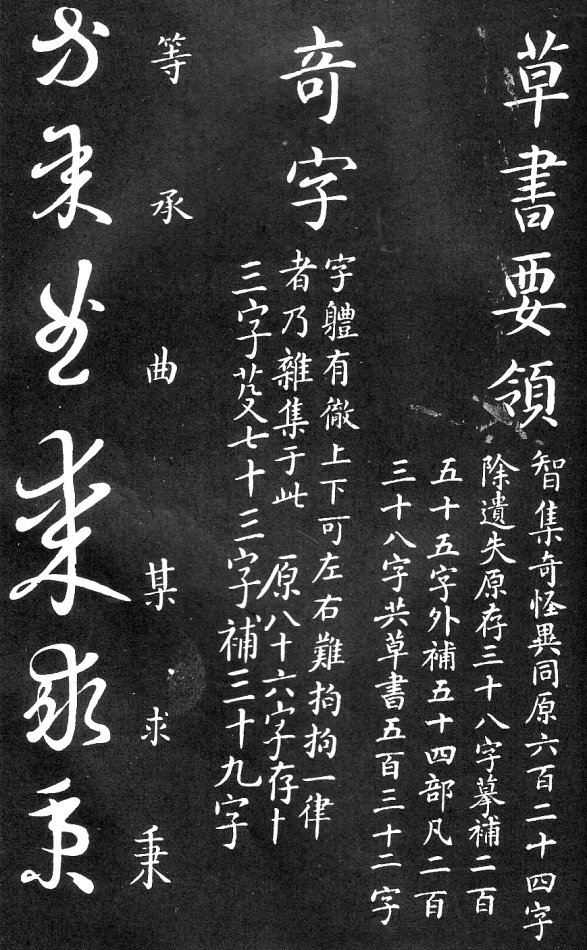 草書要領
智集奇怪異同原六百二十四字
除遺失原存三十八字摹補二百
五十五字外補五十四部凡二百
三十八字共草書五百三十二字
竒字
字體有徹上下可左右難拘拘一律
者乃雜集于此 原八十六字存十
三字芟七十三字補三十九字
等 承 曲 某 求 秉
等 承 曲 某 求 秉